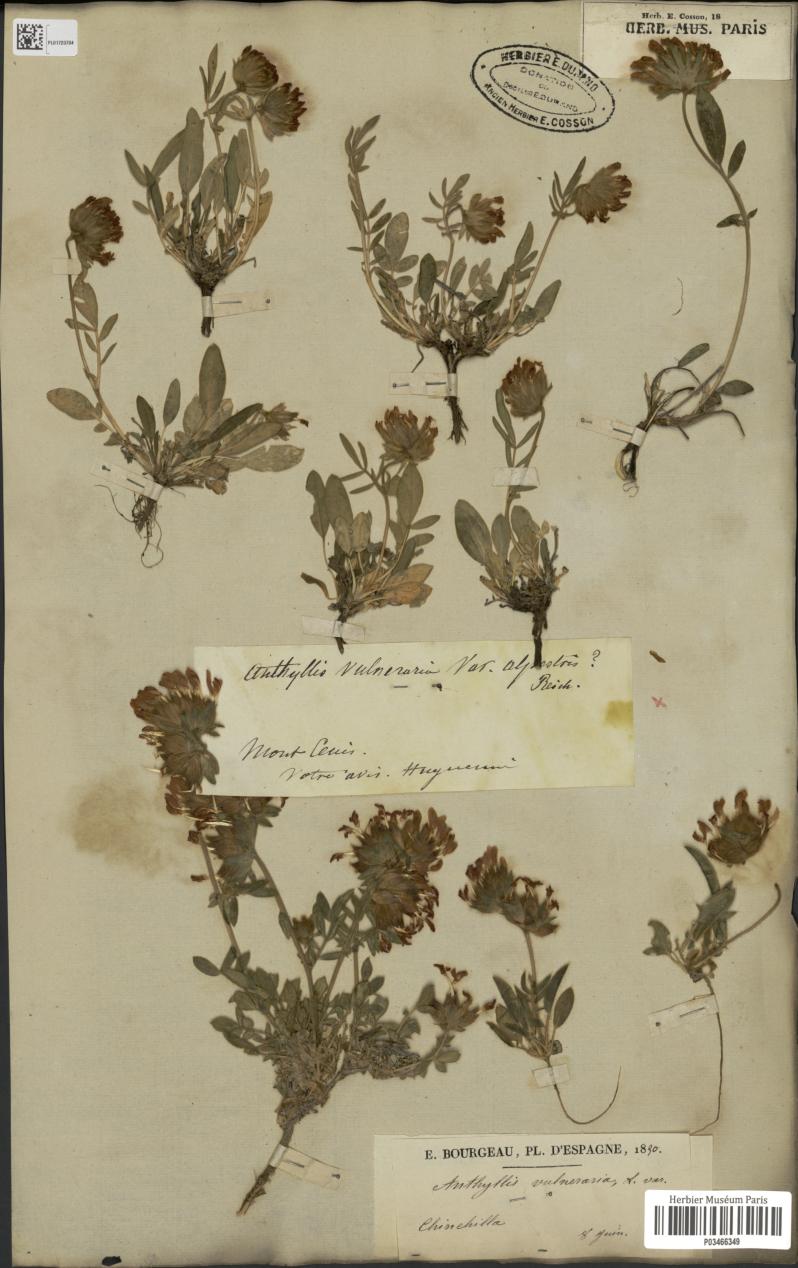 PL01723704
Herb. E. Cosson, 18
HERB. MUS. PARIS
HERBIER E. DURAND
DONATION
DU
DOCTEUR E. DURAND
ANCIEN HERBIER E. COSSON
Anthyllis vulneraria Var. alpestris?
Reich.
Mont Cenis.
Votre avis. Huguenin
E. BOURGEAU, PL. D'ESPAGNE, 1850.
Anthyllis vulneraria, L. var.
Chinchilla
8 Juin.
Herbier Muséum Paris
P03466349